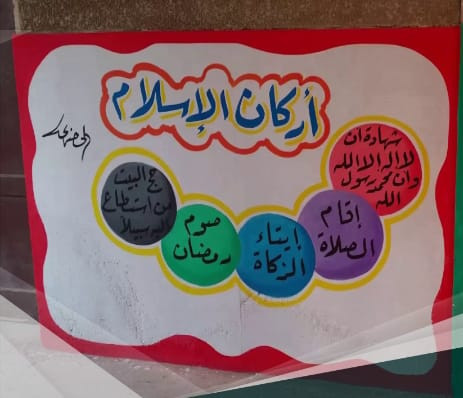 أركان الإسلام
شهادة ان
لا اله الا الله
وان محمد رسول
الله
إقام
الصلاة
إيتاء
الزكاة
صوم
رمضان
حج البيت
من استطاع
اليه سبيلاً